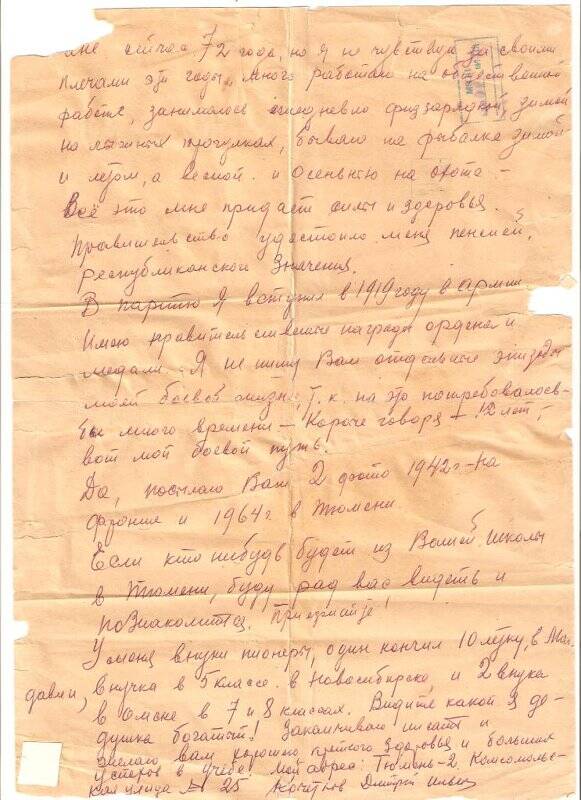 мне сейчас 72 года, но я не чувствую за своими
плечами эти годы, много работаю на общественной
работе, занимаюсь ежедневно физзарядкой зимой
на лыжных прогулках, бываю на рыбалке зимой
и летом, а весной и осенью на охоте. –
Всё это мне придаёт силы и здоровья.
Правительство удостоило меня пенсией,
Республиканского значения.
В партию я вступил в 1919 году в армии
Имею правительственные награды ордена и
медали. Я не пишу Вам отдельные эпизоды
моей боевой жизни, т.к. на это потребовалось
бы много времени – Короче говоря – 12 лет,
вот мой боевой путь.
Да, посылаю Вам 2 фото 1942 г. – на
фронте и 1964 г. в Тюмени.
Если кто нибудь будет из Вашей школы
в Тюмени, буду рад вас видеть и
познакомится. Приезжайте!
У меня внуки пионеры, один кончил 10 летку, в Мол
давии, внучка в 5 классе в Новосибирске, и 2 внука
в Омске в 7 и 8 классах. Видите какой я де-
душка богатый! Заканчиваю писать и
желаю вам хорошего здоровья и больших
успехов в учебе! Мой адрес: Тюмень-2 Комсомольс-
кая улица № 25 Дмитрий Ильич